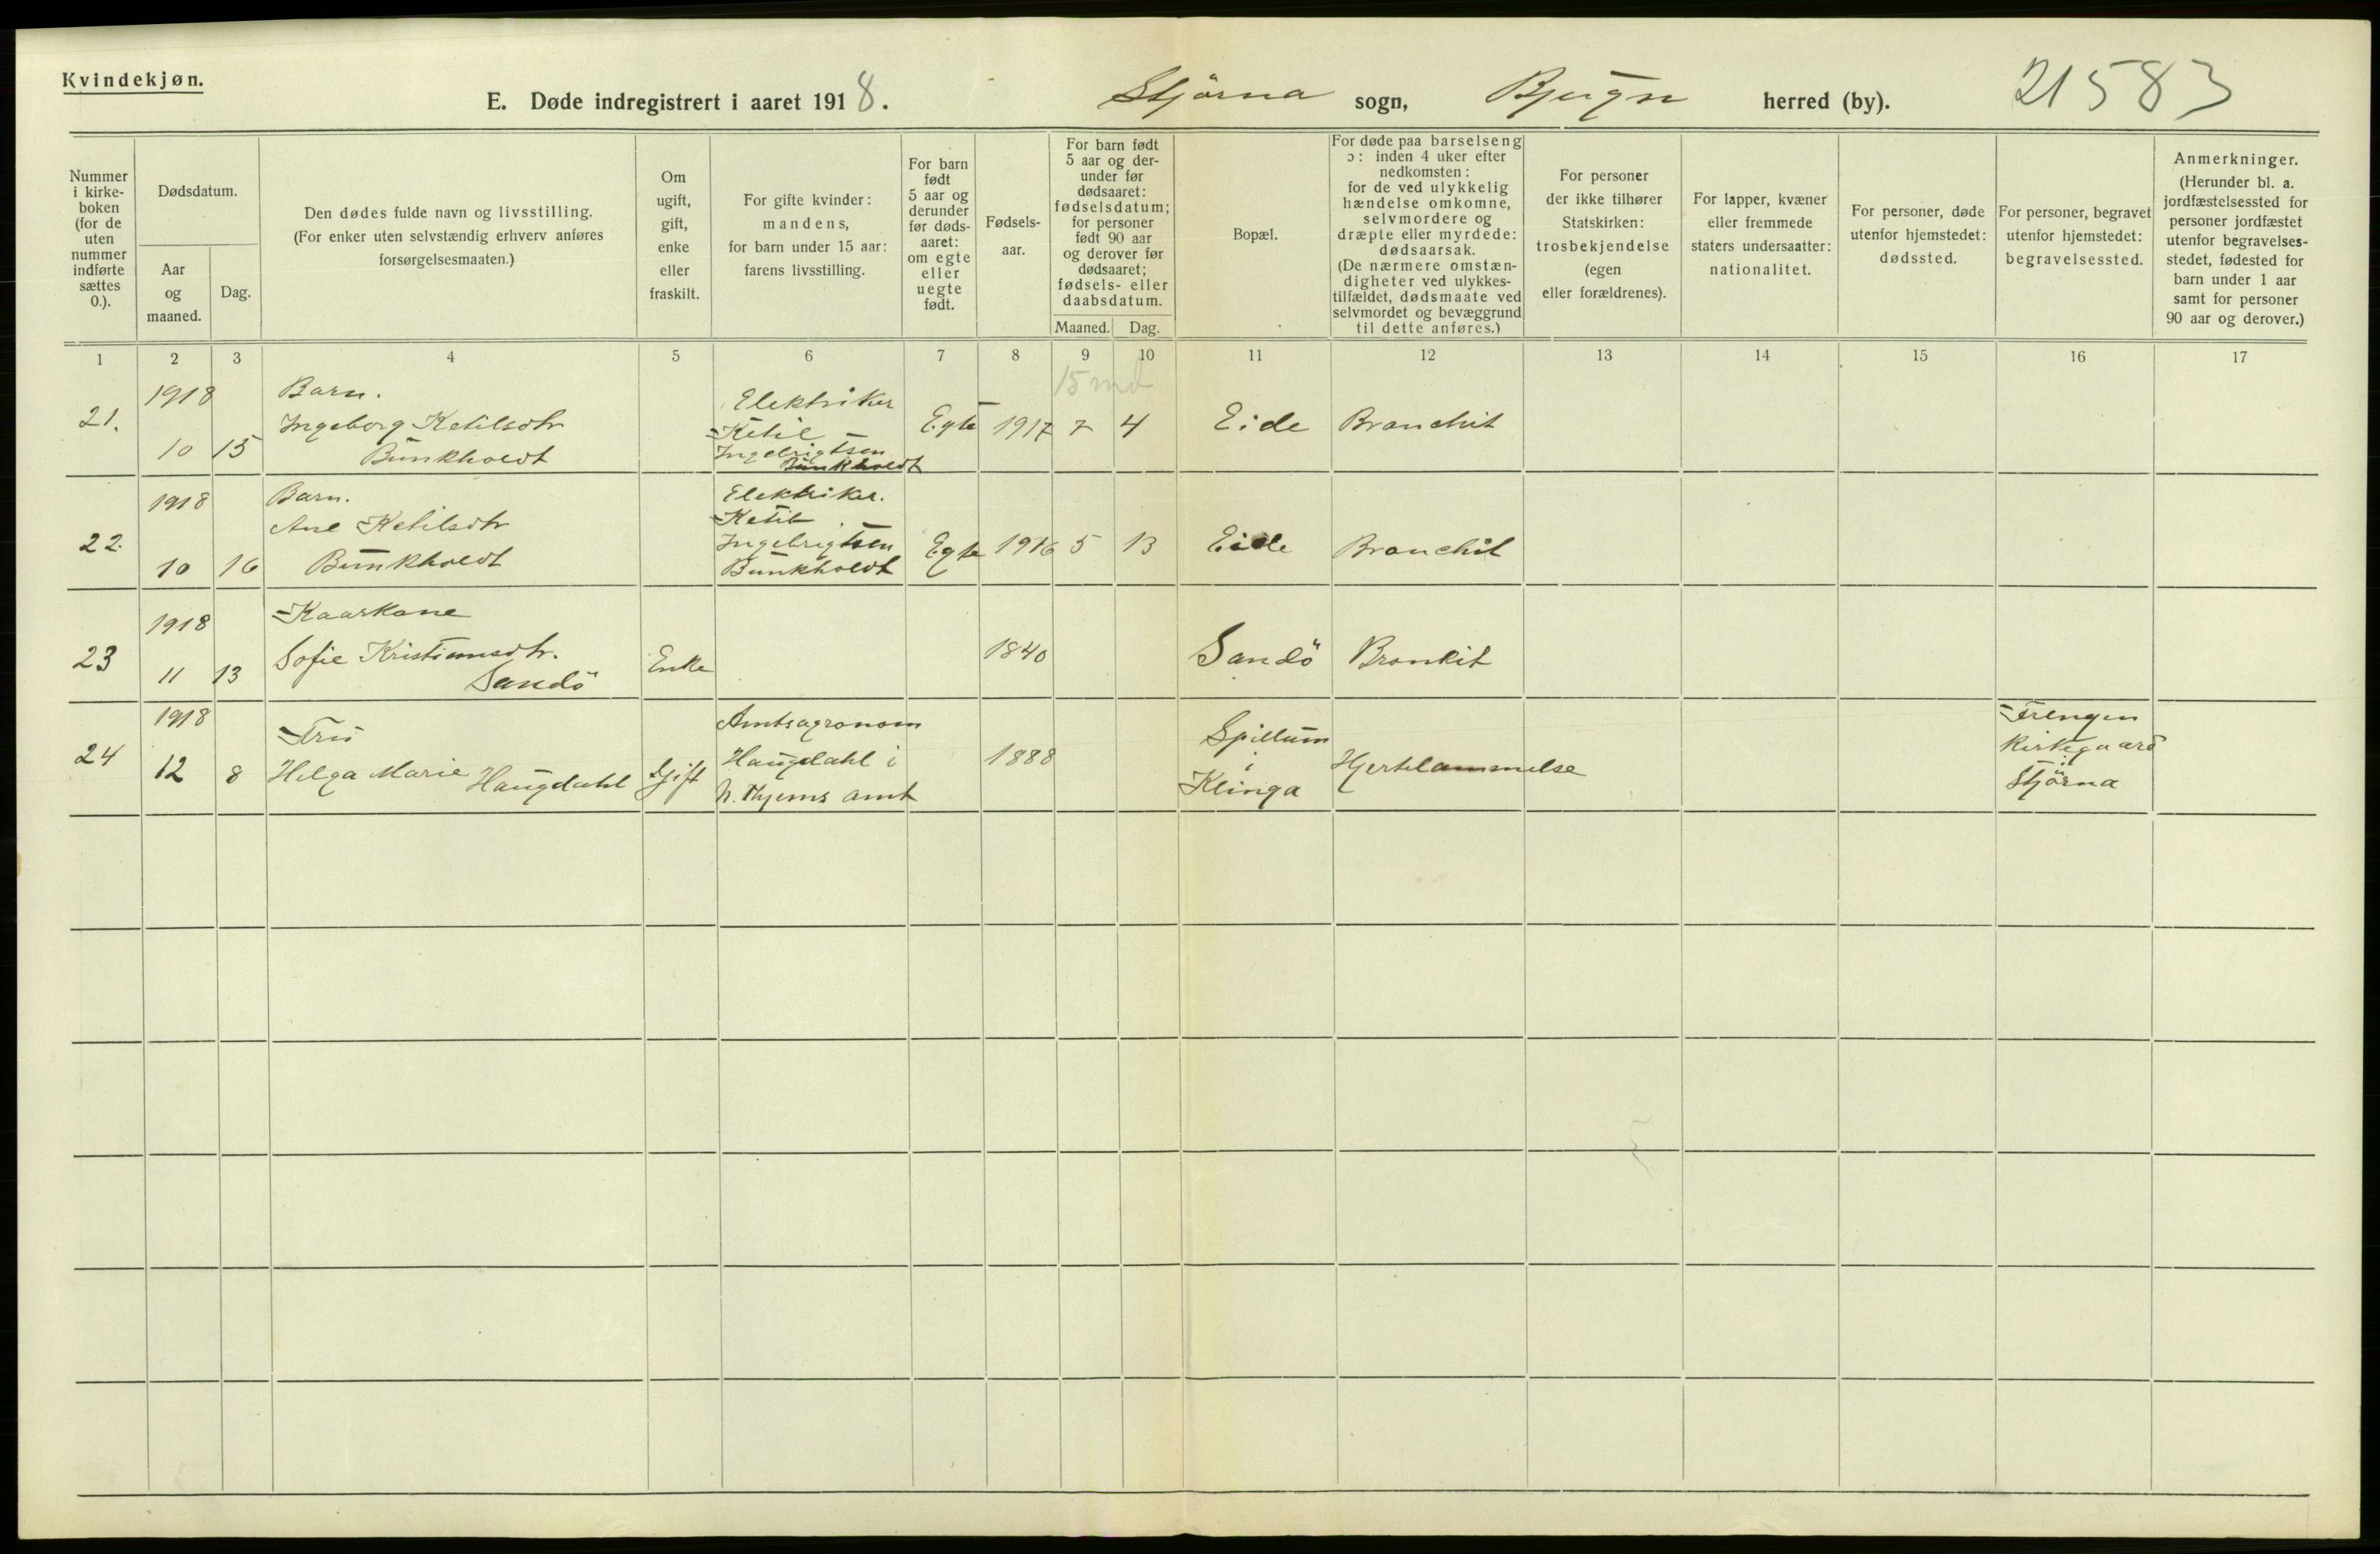 Kvindekjøn.
E. Døde indregistrert i aaret 1918. Stjörna sogn, Bjugn herred (by). 21583
Nummer
i kirke-
boken
(for de
uten
nummer
indførte
sættes
0.).
Dødsdatum.
Aar
og
maaned.
Dag.
Den dødes fulde navn og livsstilling.
(For enker uten selvstændig erhverv anføres
forsørgelsesmaaten.)
Om
ugift,
gift,
enke
eller
fraskilt.
For gifte kvinder:
mandens,
for barn under 15 aar:
farens livsstilling.
For barn
født
5 aar og
derunder
før døds-
aaret:
om egte
eller
uegte
født.
Fødsels-
aar.
For barn født
5 aar og der-
under før
dødsaaret:
fødselsdatum;
for personer
født 90 aar
og derover før
dødsaaret;
fødsels- eller
daabsdatum.
Maaned. Dag.
Bopæl.
For døde paa barselseng
ɔ: inden 4 uker efter
nedkomsten:
for de ved ulykkelig
hændelse omkomne,
selvmordere og
dræpte eller myrdede:
dødsaarsak.
(De nærmere omstæn-
digheter ved ulykkes-
tilfældet, dødsmaate ved
selvmordet og bevæggrund
til dette anføres.)
For personer
der ikke tilhører
Statskirken:
trosbekjendelse
(egen
eller forældrenes).
For lapper, kvæner
eller fremmede
staters undersaatter:
nationalitet.
For personer, døde
utenfor hjemstedet:
dødssted.
For personer, begravet
utenfor hjemstedet:
begravelsessted.
Anmerkninger.
(Herunder bl. a.
jordfæstelsessted for
personer jordfæstet
utenfor begravelses-
stedet, fødested for
barn under 1 aar
samt for personer
90 aar og derover.)
1 2 3 4 5 6 7 8 9 10 11 12 13 14 15 16 17
15 md
21.
1918
10 15
Barn.
Ingeborg Ketilsdtr
Bunkholdt
Elektriker
Ketil
Ingebrigtsen
Bunkholdt
Egte 1917 7 4 Eide Bronchit
22.
1918
10 16
Barn.
Ane Ketilsdtr
Bunkholdt
Elektriker.
Ketil
Ingebrigtsen
Bunkholdt
Egte 1916 5 13 Eide Bronchit
23
1918
11 13
Kaarkone
Sofie Kristiansdtr.
Sandö
Enke 1840 Sandö Bronkit
24
1918
12 8
Fru
Helga Marie Haugdahl
Gift
Amtsagronom
Haugdahl i
N. Thjems amt
1888
Spillum
i
Klinga
Hjertelammelse
Frengen
Kirkegaard
i
Stjörna